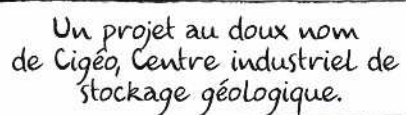 Un projet au doux nom
de Cigéo, Centre industriel de
stockage géologique.